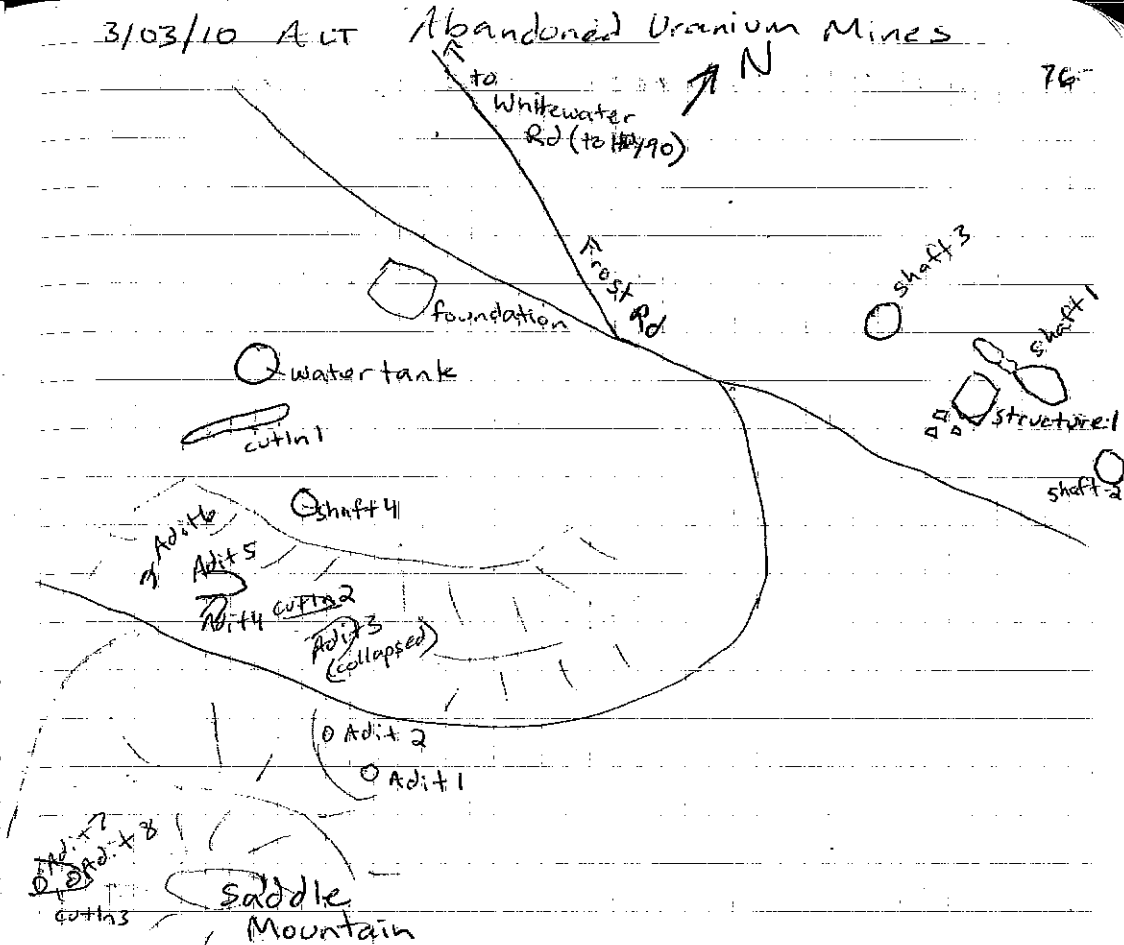 3/03/10 ALT Abandoned Uranium Mines
N
76
to
Whitewater
Rd (to Hwy 90)
Frost Rd
foundation
shaft 3
shaft 1
structure 1
shaft 2
water tank
cut In 1
shaft 4
Adit 6
Adit 5
Adit 4
cut In 2
Adit 3
(collapsed)
Adit 2
Adit 1
Adit 7
Adit 8
cut In 3
Saddle
Mountain